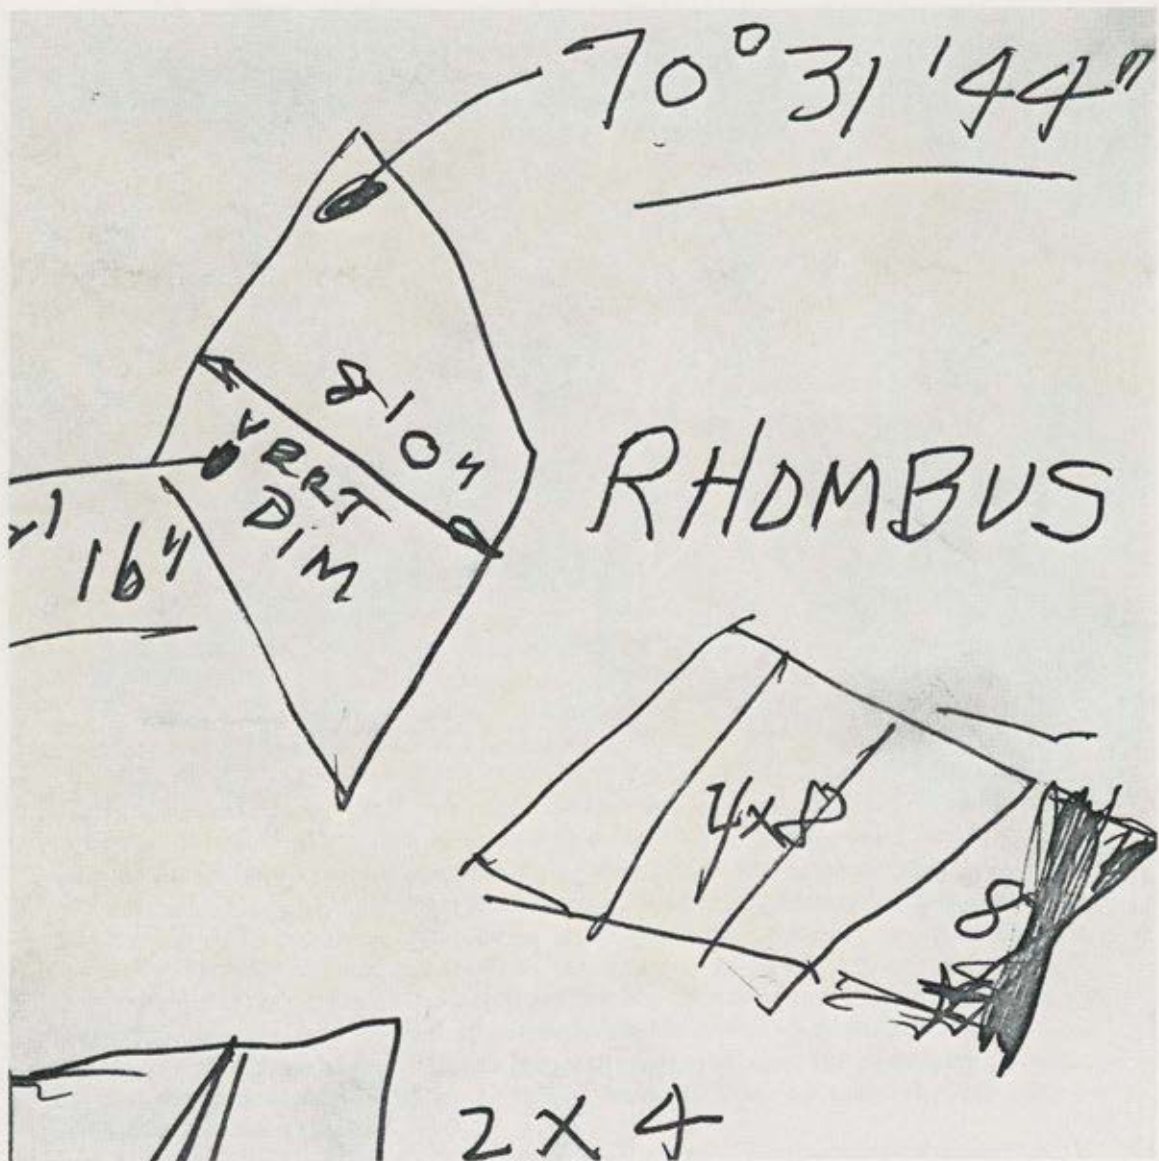 70°31'44"
8'10"
VERT
DIM
16"
RHOMBUS
4x8
8
2 X 4